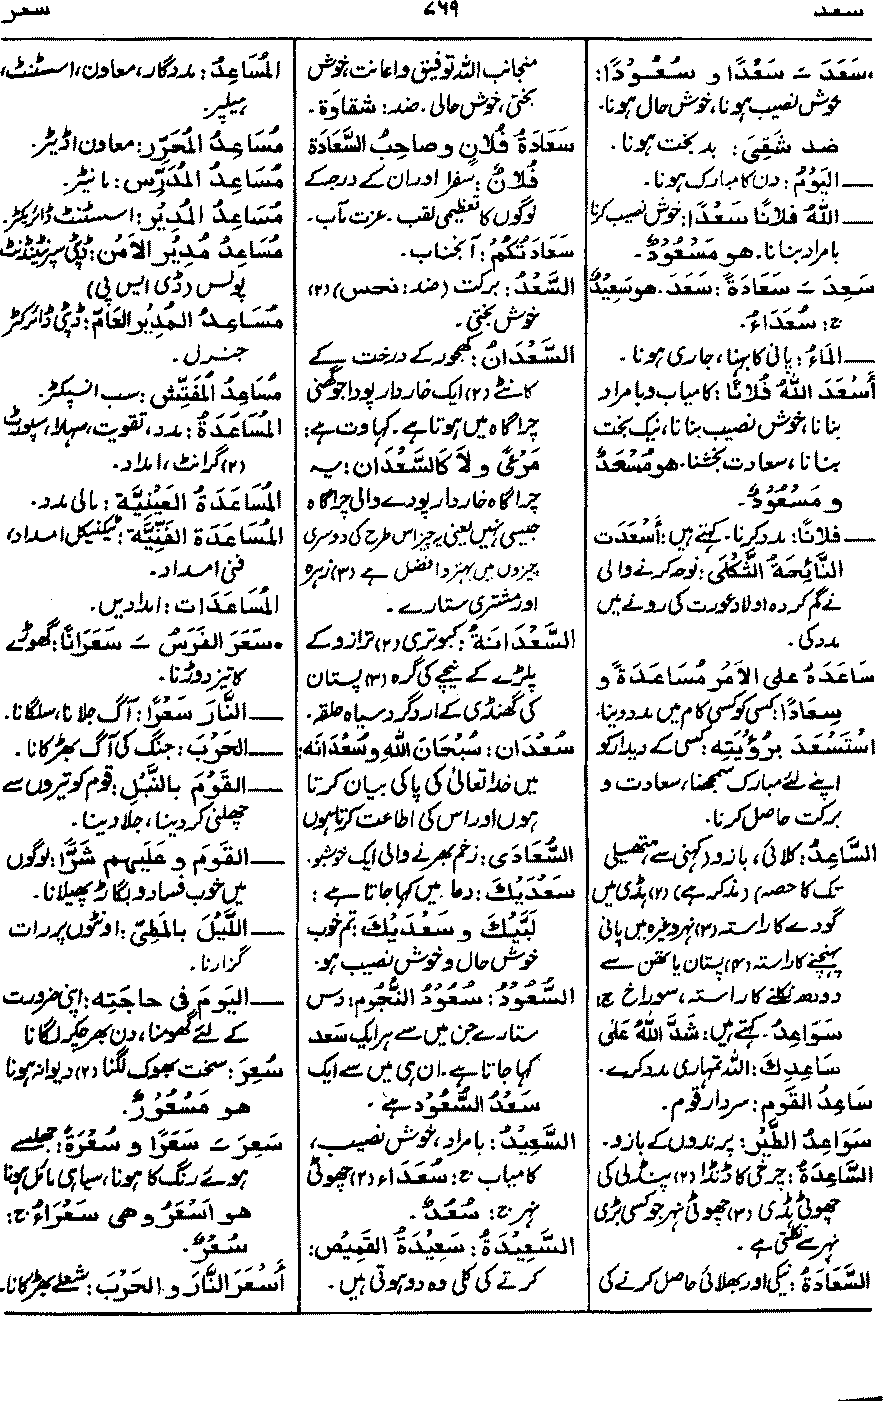 سعد
۷۶۹
سعر
•سَعَدَ ــَ سَعْدًا و سُعُوْدًا:
خوش نصیب ہونا، خوش حال ہونا۔
ضد شَقِیَ: بد بخت ہونا۔
ــــ الیَوْمُ: دن کا مبارک ہونا۔
ــــ اللهُ فُلَانًا سَعْدًا: خوش نصیب کرنا
بامراد بنانا۔ هو مَسْعُوْدٌ۔
سَعِدَ ــَ سَعَادَةً: سَعَدَ۔ هو سَعِیْدٌ
ج: سُعَدَاءُ۔
ــــ المَاءُ: پانی کا بہنا، جاری ہونا۔
أَسْعَدَ اللهُ فُلَانًا: کامیاب و بامراد
بنانا، خوش نصیب بنانا، نیک بخت
بنانا، سعادت بخشنا۔ هو مُسْعَدٌ
و مَسْعُوْدٌ۔
ــــ فلانًا: مدد کرنا۔ کہتے ہیں: أَسْعَدَت
النَّائِحَةُ الثَّكْلَى: نوحہ کرنے والی
نے گم کردہ اولاد عورت کی رونے میں
مدد کی۔
سَاعَدَهُ علی الأمْرِ مُسَاعَدَةً و
سِعَادًا: کسی کو کسی کام میں مدد دینا۔
اسْتَسْعَدَ بِرُؤْیَتِه: کسی کے دیدار کو
اپنے لئے مبارک سمجھنا، سعادت و
برکت حاصل کرنا۔
السَّاعِدُ: کلائی، بازو (کہنی سے ہتھیلی
تک کا حصہ) (مذکر ہے) (۲) ہڈی میں
گودے کا راستہ (۳) نہر وغیرہ میں پانی
پہنچنے کا راستہ (۴) پستان یا تھن سے
دودھ نکلنے کا راستہ، سوراخ ج:
سَوَاعِدُ۔ کہتے ہیں: شَدَّ اللهُ عَلَى
سَاعِدِكَ: اللہ تمہاری مدد کرے۔
سَاعِدُ القَوْم: سردار قوم۔
سَوَاعِدُ الطَّیْرِ: پرندوں کے بازو۔
السَّاعِدَةُ: چرخی کا ڈنڈا (۲) پنڈلی کی
چھوٹی ہڈی (۳) چھوٹی نہر جو کسی بڑی
نہر سے نکلتی ہے۔
السَّعَادَةُ: نیکی اور بھلائی حاصل کرنے کی
منجانب اللہ توفیق و اعانت، خوش
بختی، خوش حالی۔ ضد: شقاوة۔
سَعَادَةُ فُلَانٍ و صاحِبُ السَّعَادَةِ
فُلَانٌ: سفرا اور ان کے درجے کے
لوگوں کا تعظیمی لقب۔ عزت مآب۔
سَعَادَتُکُمْ: آنجناب۔
السَّعْدُ: برکت (ضد: نحس) (۲)
خوش بختی۔
السَّعْدَانُ: کھجور کے درخت کے
کانٹے (۲) ایک خار دار پودا جو گھنی
چراگاہ میں ہوتا ہے۔ کہاوت ہے:
مَرْعًی و لَا کَالسَّعْدَانِ: یہ
چراگاہ خار دار پودے والی چراگاہ
جیسی نہیں یعنی یہ چیز اس طرح کی دوسری
چیزوں میں بہتر و افضل ہے (۳) زہرہ
اور مشتری ستارے۔
السَّعْدَانَةُ: کبوتری (۲) ترازو کے
پلڑے کے نیچے کی گرہ (۳) پستان
کی گھنڈی کے اردگرد سیاہ حلقہ۔
سُعْدَان: سُبْحَانَ اللهِ و سُعْدَانَه:
میں خدا تعالیٰ کی پاکی بیان کرتا
ہوں اور اس کی اطاعت کرتا ہوں
السُّعَادَى: زخم بھرنے والی ایک خوشبو۔
سَعْدَیْكَ: دعا میں کہا جاتا ہے:
لَبَّیْكَ و سَعْدَیْكَ: تم خوب
خوش حال و خوش نصیب ہو۔
السُّعُوْدُ: سُعُوْدُ النُّجُوْم: دس
ستارے جن میں سے ہر ایک سَعْد
کہا جاتا ہے۔ ان ہی میں سے ایک
سَعْدُ السُّعُوْد ہے۔
السَّعِیْدُ: بامراد، خوش نصیب،
کامیاب ج: سُعَدَاء (۲) چھوٹی
نہر ج: سُعُدٌ۔
السَّعِیْدَةُ: سَعِیْدَةُ القَمِیْص:
کرتے کی کلی وہ دو ہوتی ہیں۔
المُسَاعِدُ: مددگار، معاون، اسسٹنٹ،
ہیلپر۔
مُسَاعِدُ المُحَرِّرِ: معاون اڈیٹر۔
مُسَاعِدُ المُدَرِّسِ: مانیٹر۔
مُسَاعِدُ المُدِیْرِ: اسسٹنٹ ڈائریکٹر۔
مُسَاعِدُ مُدِیْرِ الأمْنِ: ڈپٹی سپرنٹنڈنٹ
پولس (ڈی ایس پی)
مُسَاعِدُ المُدِیْرِ العَامّ: ڈپٹی ڈائرکٹر
جنرل۔
مُسَاعِدُ المُفَتِّش: سب انسپکٹر۔
المُسَاعَدَةُ: مدد، تقویت، سہارا، سپورٹ
(۲) گرانٹ، امداد۔
المُسَاعَدَةُ العَیْنِیَّة: مالی مدد۔
المُسَاعَدَة الفَنِّیَّة: ٹیکنیکل امداد،
فنی امداد۔
المُسَاعَدَات: امدادیں۔
•سَعَرَ الفَرَسُ ــَ سَعَرَانًا: گھوڑے
کا تیز دوڑنا۔
ــــ النَّارَ سَعْرًا: آگ جلانا، سلگانا۔
ــــ الحَرْبَ: جنگ کی آگ بھڑکانا۔
ــــ القَوْمَ بِالنَّبْلِ: قوم کو تیروں سے
چھلنی کر دینا، جلا دینا۔
ــــ القَوْمَ و عَلَیْهِم شَرًّا: لوگوں
میں خوب فساد و بگاڑ پھیلانا۔
ــــ اللَّیْلَ بالمَطِیِّ: اونٹوں پر رات
گزارنا۔
ــــ الیَوْمَ فی حاجَتِه: اپنی ضرورت
کے لئے گھومنا، دن بھر چکر لگانا
سُعِرَ: سخت بھوک لگنا (۲) دیوانہ ہونا
هو مَسْعُوْرٌ۔
سَعِرَ ــَ سَعَرًا و سُعْرَةً: جھلسے
ہوئے رنگ کا ہونا، سیاہی مائل ہونا
هو أَسْعَرُ و هی سَعْرَاءُ ج:
سُعْرٌ۔
أَسْعَرَ النَّارَ و الحَرْبَ: شعلے بھڑکانا۔